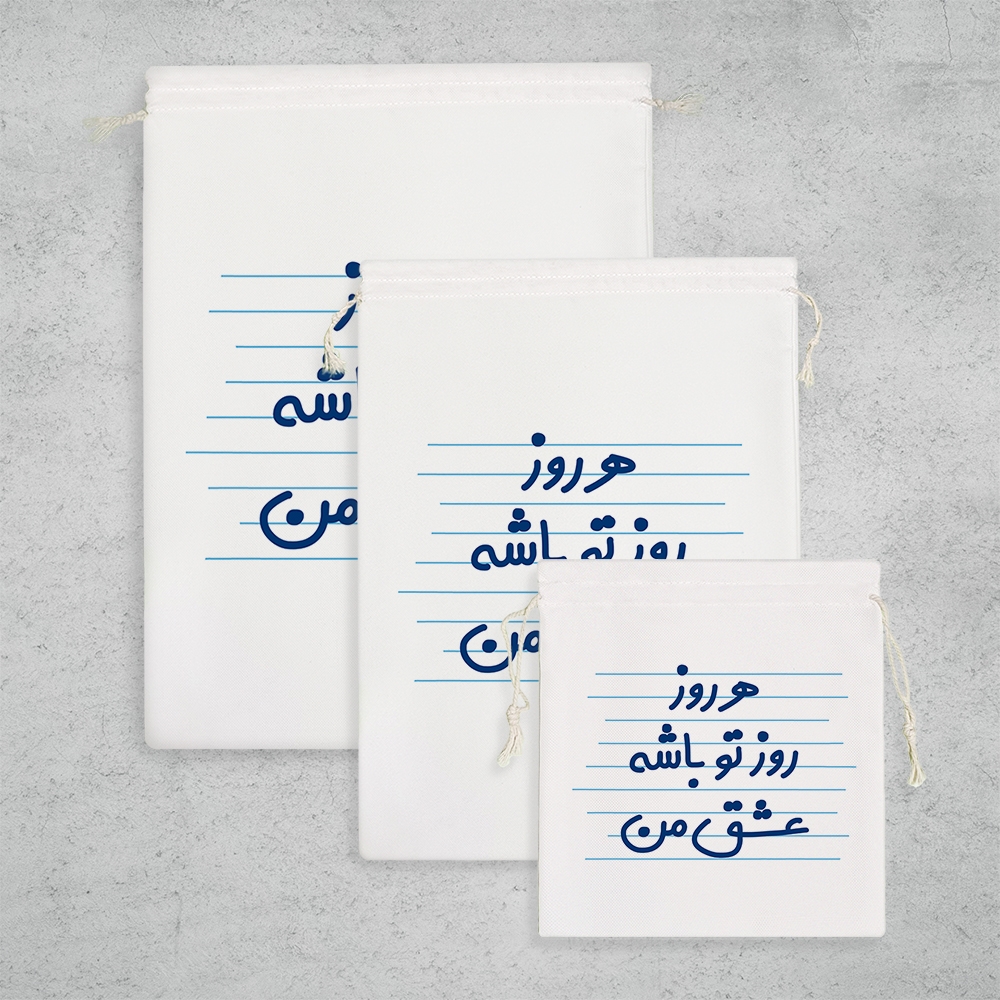 ز
شه
من
هر روز
روز تو باشه
من
هر روز
روز تو باشه
عشق من